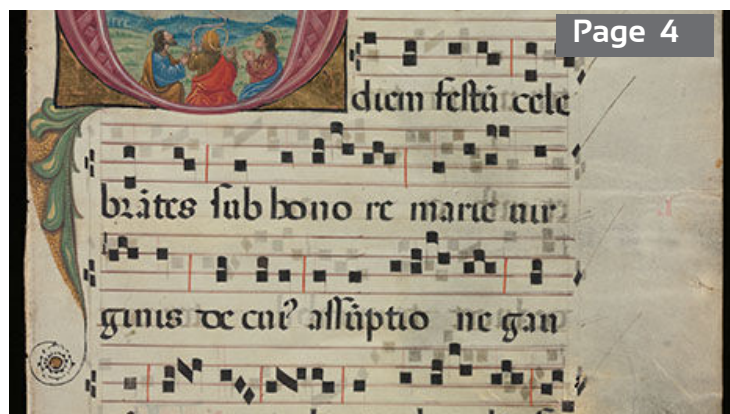 Page 4
diem festū cele
brātes sub hono re marie uir
ginis de cui⁹ assūptio ne gau